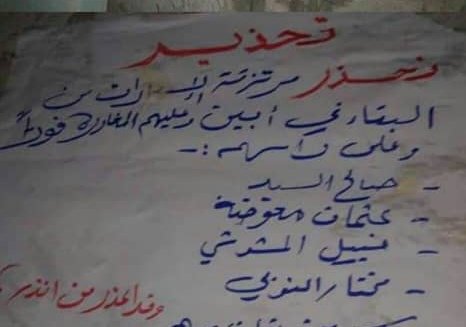 تحذير
ونحذر مرتزقة الإمارات من
البقاء في أبين وعليهم المغادرة فوراً
وعلى رأسهم :-
- صالح السيد
- عثمان معوضة
- نبيل المشوشي
- مختار النوبي
وقد اعذر من انذر